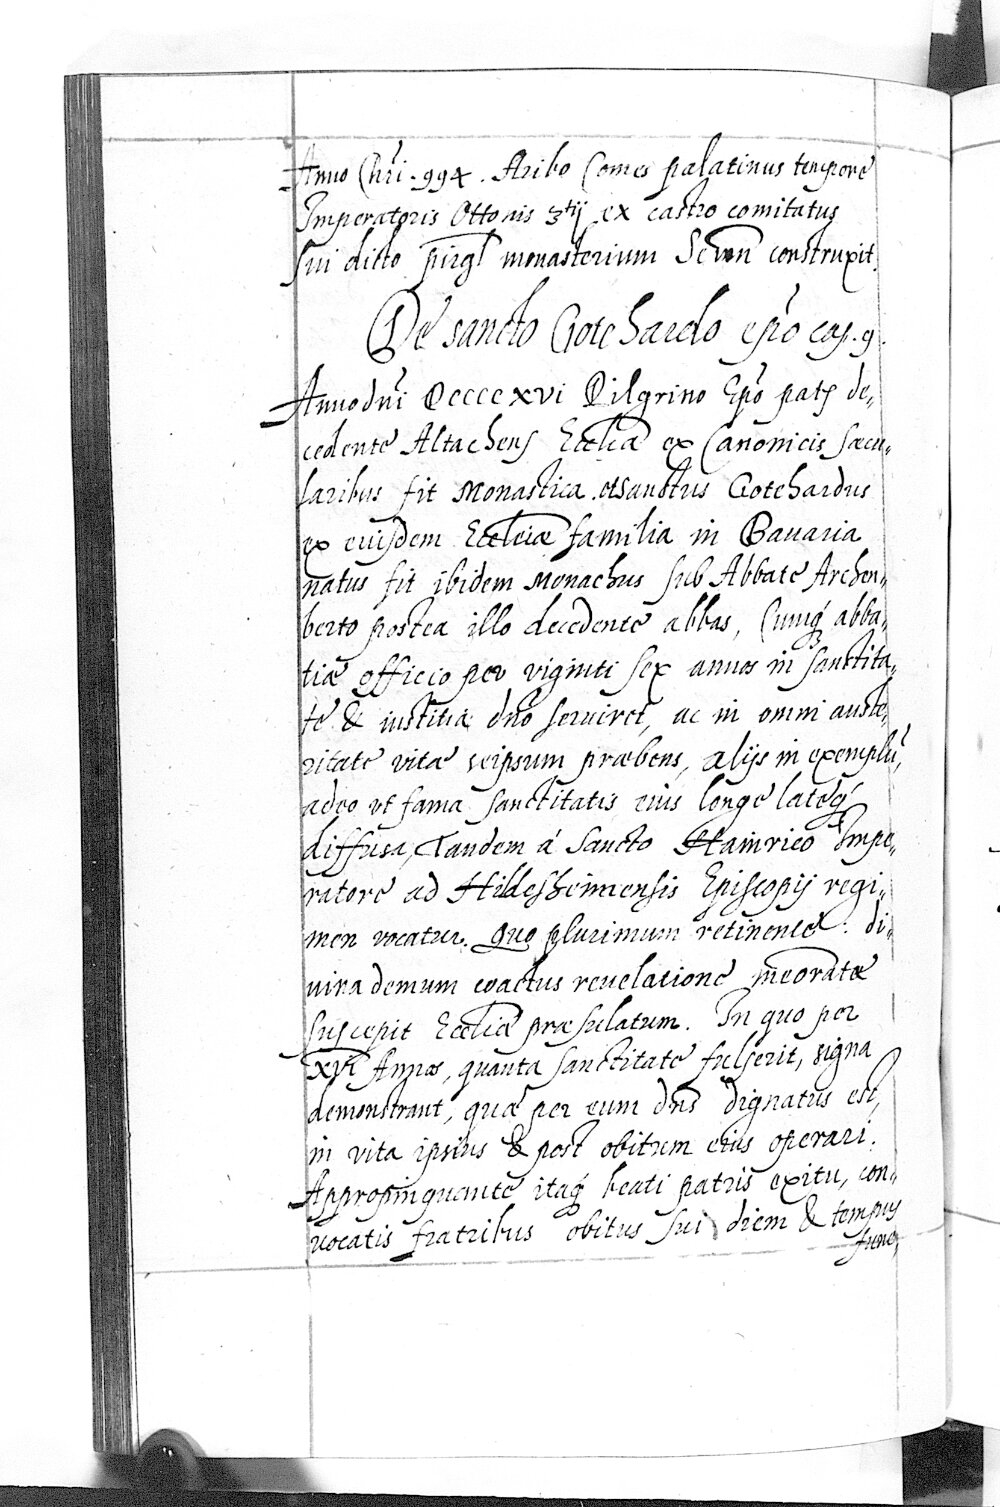 Anno Chr̃i. 994. Aribo Comes palatinus tempore
Imperatoris Ottonis 3tij ex castro comitatus
sui dicto pirgl monasterium Sewn construxit.
De sancto Gotehardo ep̃o cap. 9.
Anno dñi DCCCCXVI Pilgrino Ep̃o pat[av] de„
cedente Altachens Eccl̃ia ex Canonicis sæcu„
laribus fit Monastica. et Sanctus Gotehardus
ex eiusdem Eccleiæ familia in Bauaria
natus fit ibidem Monachus sub Abbate Archen„
berto postea illo decedente abbas, Cumq́ abba„
tiæ officio per viginti sex annos in sanctita„
te & iustitia dño seruiret, ac in omni auste„
ritate vitæ seipsum præbens, alijs in exemplũ,
adeo vt fama sanctitatis eius longe lateq́
diffusa, Tandem á Sancto Hainrico Impe„
ratore ad Hildesheimensis Episcopij regi„
men vocatur. Quo plurimum retinente. di„
uina demum coactus reuelatione meõratæ
suscepit Eccl̃iæ præsulatum. In quo per
XVI Annos, quanta sanctitate fulserit, signa
demonstrant, quæ per eum dñs dignatus est,
in vita ipsius & post obitum eius operari.
Appropinquante itaq́ beati patris exitu, con„
vocatis fratribus obitus sui diem & tempus
fune„